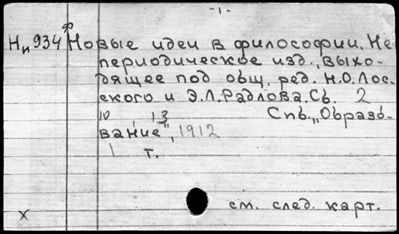 -1-
Ни 934 ф Новые идеи в философии. Не
периодическое изд., выхо-
дящее под общ. ред. Н.О. Лос.
ского и Э.Л. Радлова. Сб. 2
10, 13 Спб. „Образо-
вание", 1912
1 т.
см. след. карт.
x